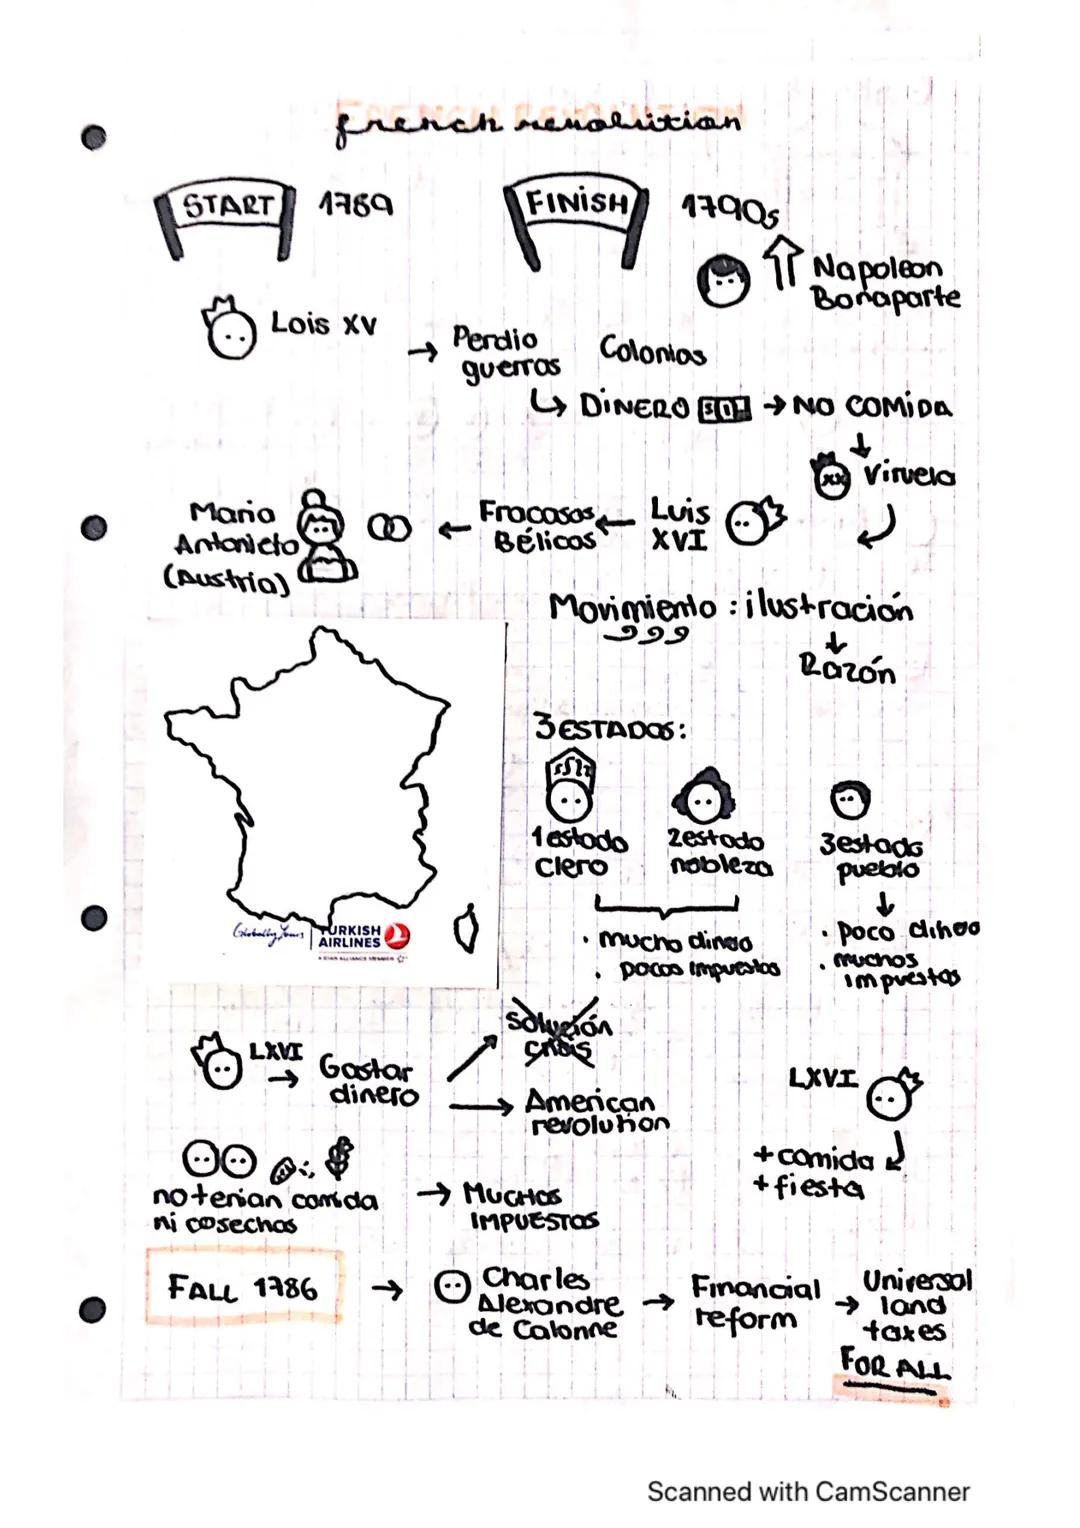 french revolution
START 1789 FINISH 1790s
Napoleon
Bonaparte
Lois XV → Perdio
guerras
Colonias
↳ DINERO → NO COMIDA
↓
Viruela
Luis
XVI
← Fracasos
Bélicos
←
Maria
Antonieta
(Austria)
Movimiento : ilustración
↓
Razón
3 ESTADOS:
1 estado
clero
2 estado
nobleza
3 estado
pueblo
· mucho dinero
· pocos impuestos
↓
· poco dinero
· muchos
impuestos
Globally Yours | TURKISH
AIRLINES
A STAR ALLIANCE MEMBER
LXVI
→ Gastar
dinero
Solución
crisis
→ American
revolution
LXVI
+ comida
+ fiesta
no tenian comida
ni cosechas
→ MUCHOS
IMPUESTOS
FALL 1786 → Charles
Alexandre
de Calonne
→ Financial
reform
→ Universal
land
taxes
FOR ALL
Scanned with CamScanner